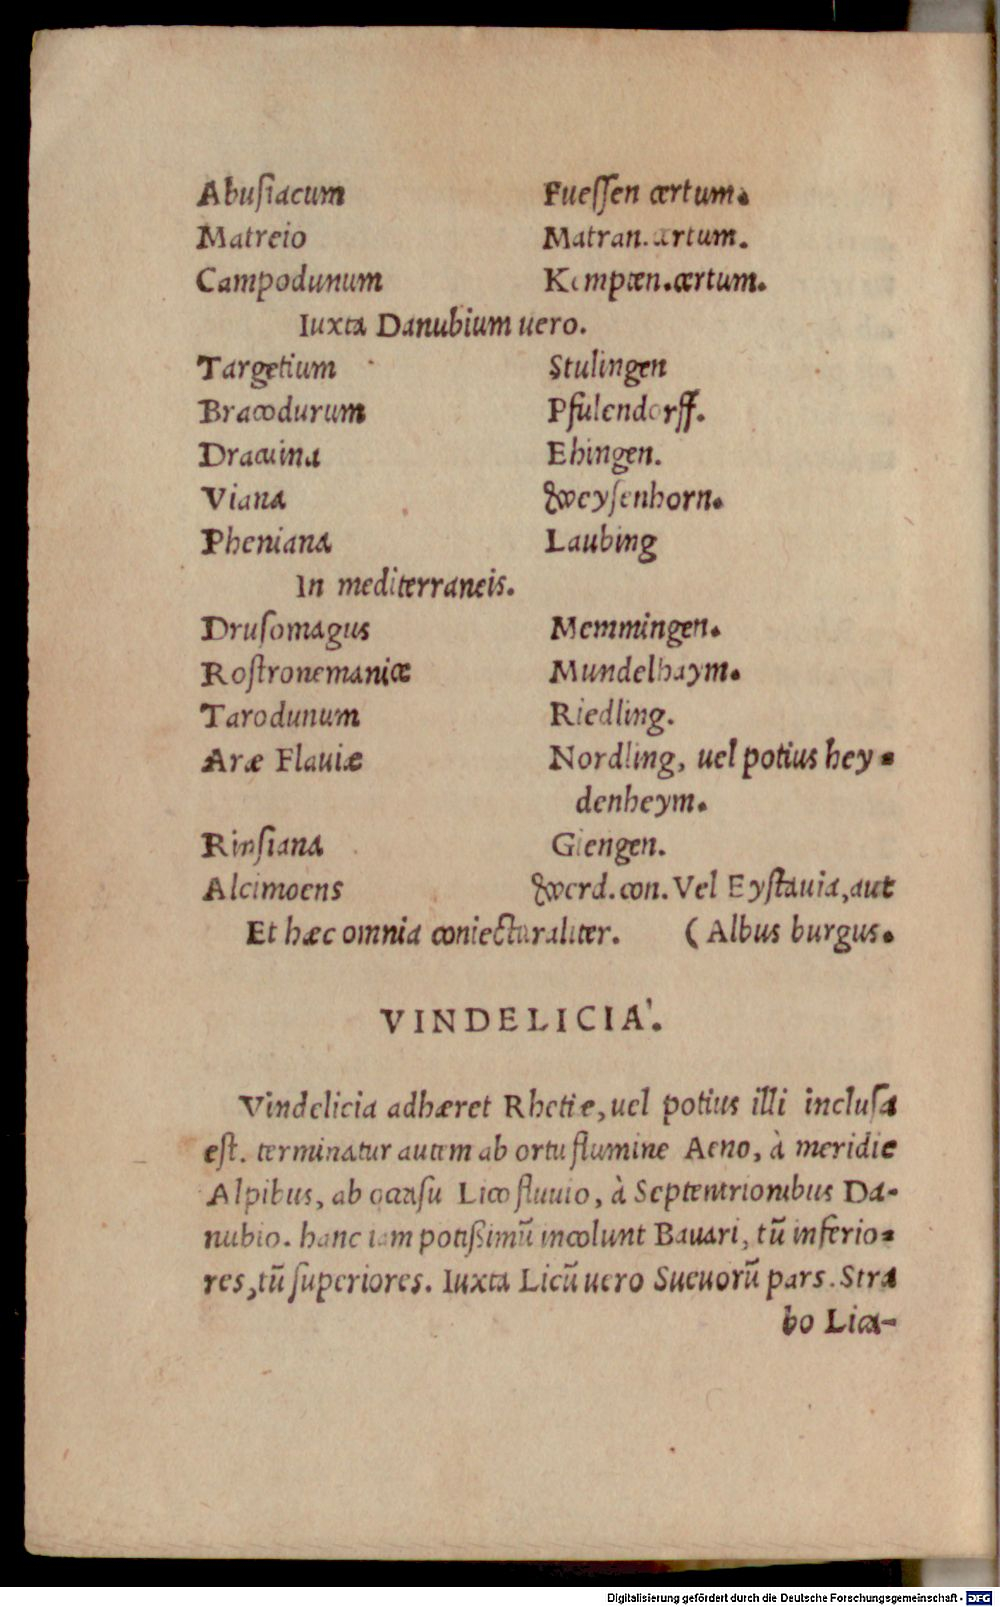 Abuſiacum Fueſſen certum.
Matreio Matran. certum.
Campodunum Kempten. certum.
Iuxta Danubium uero.
Targetium Stulingen
Bracodurum Pfulendorff.
Dracuina Ehingen.
Viana Weyſenhorn.
Pheniana Laubing
In mediterraneis.
Druſomagus Memmingen.
Roſtronemaniæ Mundelhaym.
Tarodunum Riedling.
Aræ Flauiæ Nordling, uel potius hey-
denheym.
Rinſiana Giengen.
Alcimoens Werd. con. Vel Eyſtauia, aut
Et hæc omnia coniecturaliter. (Albus burgus.
VINDELICIA.
Vindelicia adhæret Rhetiæ, uel potius illi incluſa
eſt. terminatur autem ab ortu flumine Aeno, à meridie
Alpibus, ab occaſu Lico fluuio, à Septentrionibus Da-
nubio. hanc iam potiſſimũ incolunt Bauari, tũ inferio-
res, tũ ſuperiores. Iuxta Licũ uero Sueuorũ pars. Stra
bo Lica-
Digitalisierung gefördert durch die Deutsche Forschungsgemeinschaft - DFG